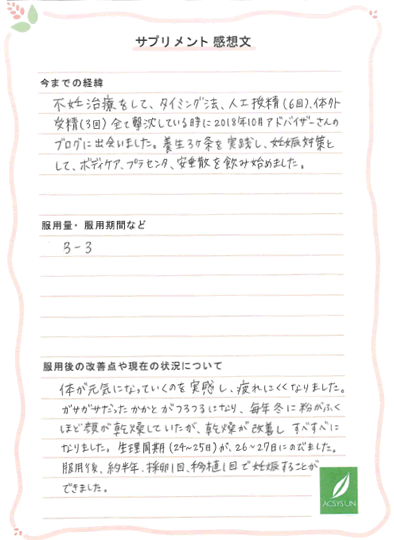 サプリメント 感想文
今までの経緯
不妊治療をして、タイミング法、人工授精(6回)、体外
受精(3回)全て撃沈している時に2018年10月アドバイザーさんの
ブログに出会いました。養生3ヶ条を実践し、妊娠対策と
して、ボディケア、プラセンタ、安亜散を飲み始めました。
服用量・服用期間など
3-3
服用後の改善点や現在の状況について
体が元気になっていくのを実感し、疲れにくくなりました。
ガサガサだったかかとがつるつるになり、毎年冬に粉がふく
ほど顔が乾燥していたが、乾燥が改善し すべすべに
なりました。生理周期(24~25日)が、26~27日にのびました。
服用後、約半年、採卵1回、移植1回で妊娠することが
できました。
ACSYSUN